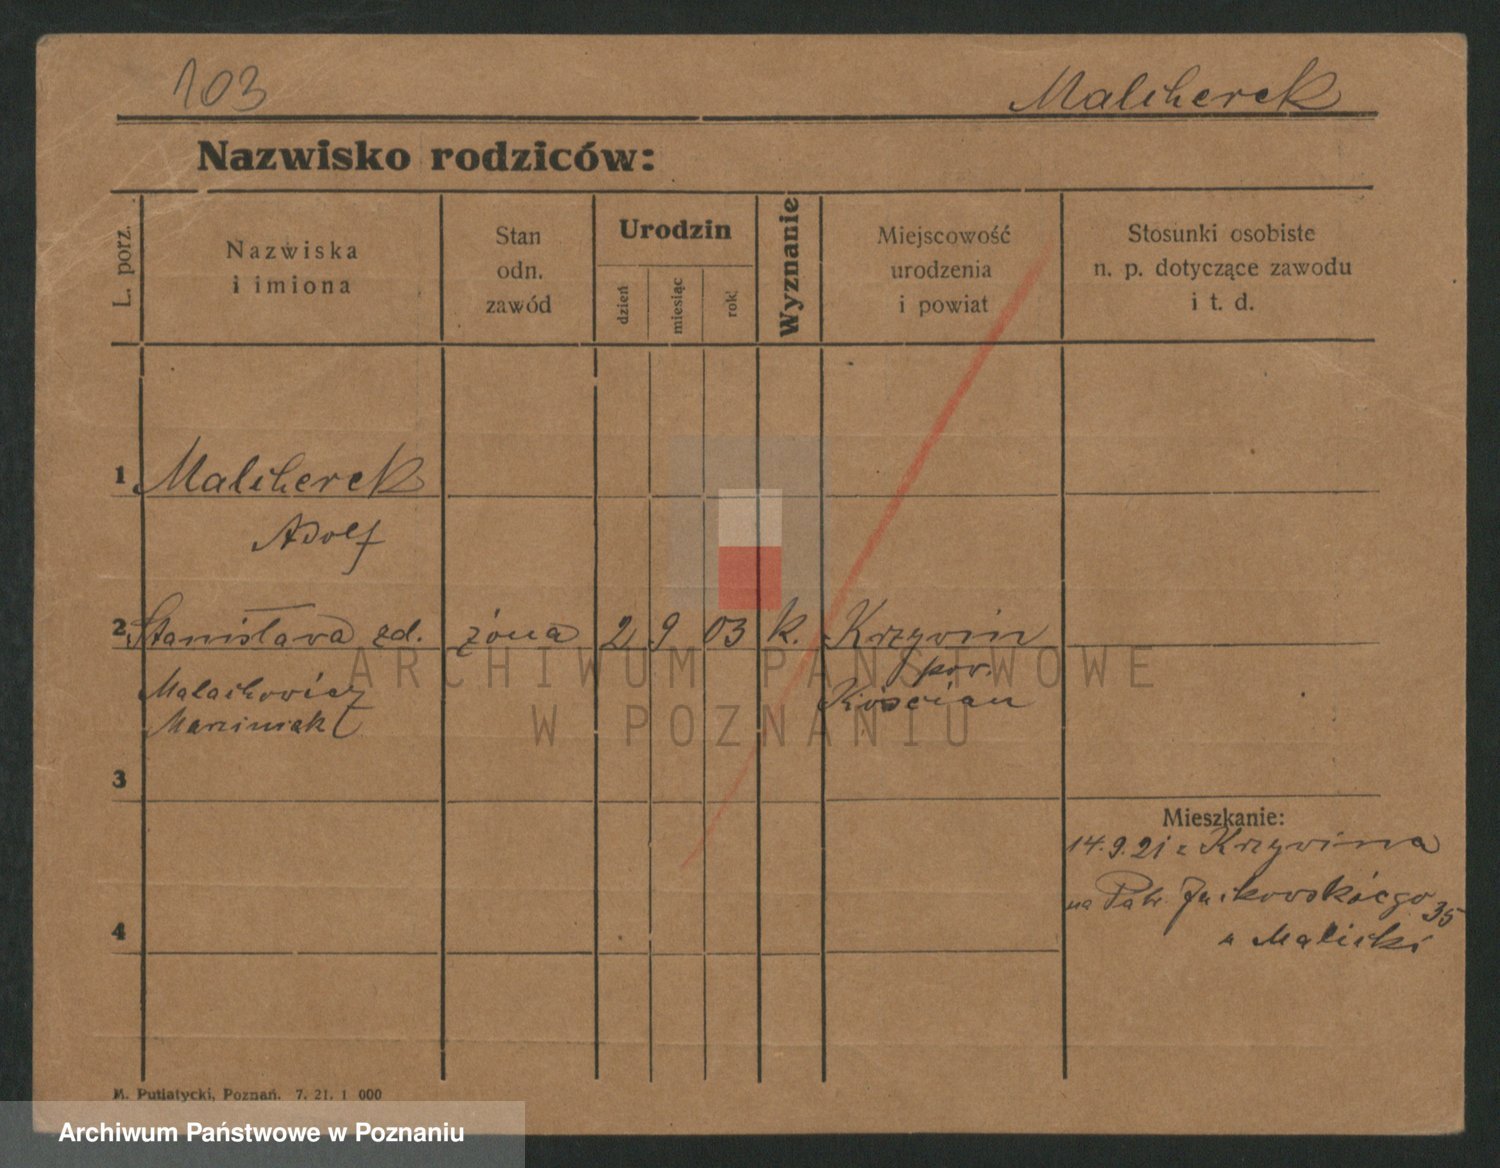 103
Malcherek
Nazwisko rodziców:
L. porz.
Nazwiska
i imiona
Stan
odn.
zawód
Urodzin
dzień
miesiąc
rok
Wyznanie
Miejscowość
urodzenia
i powiat
Stosunki osobiste
n. p. dotyczące zawodu
i t. d.
1 Malcherek
Adolf
2 Stanisława zd. żona 2 9 03 k. Krzywin
pow.
Malachowicz Kościan
Marciniak
3
Mieszkanie:
14.9.21 z Krzywina
na Patr. Jackowskiego 35
u Malicki
4
ARCHIWUM PAŃSTWOWE
W POZNANIU
M. Putiatycki, Poznań. 7. 21. 1 000
Archiwum Państwowe w Poznaniu